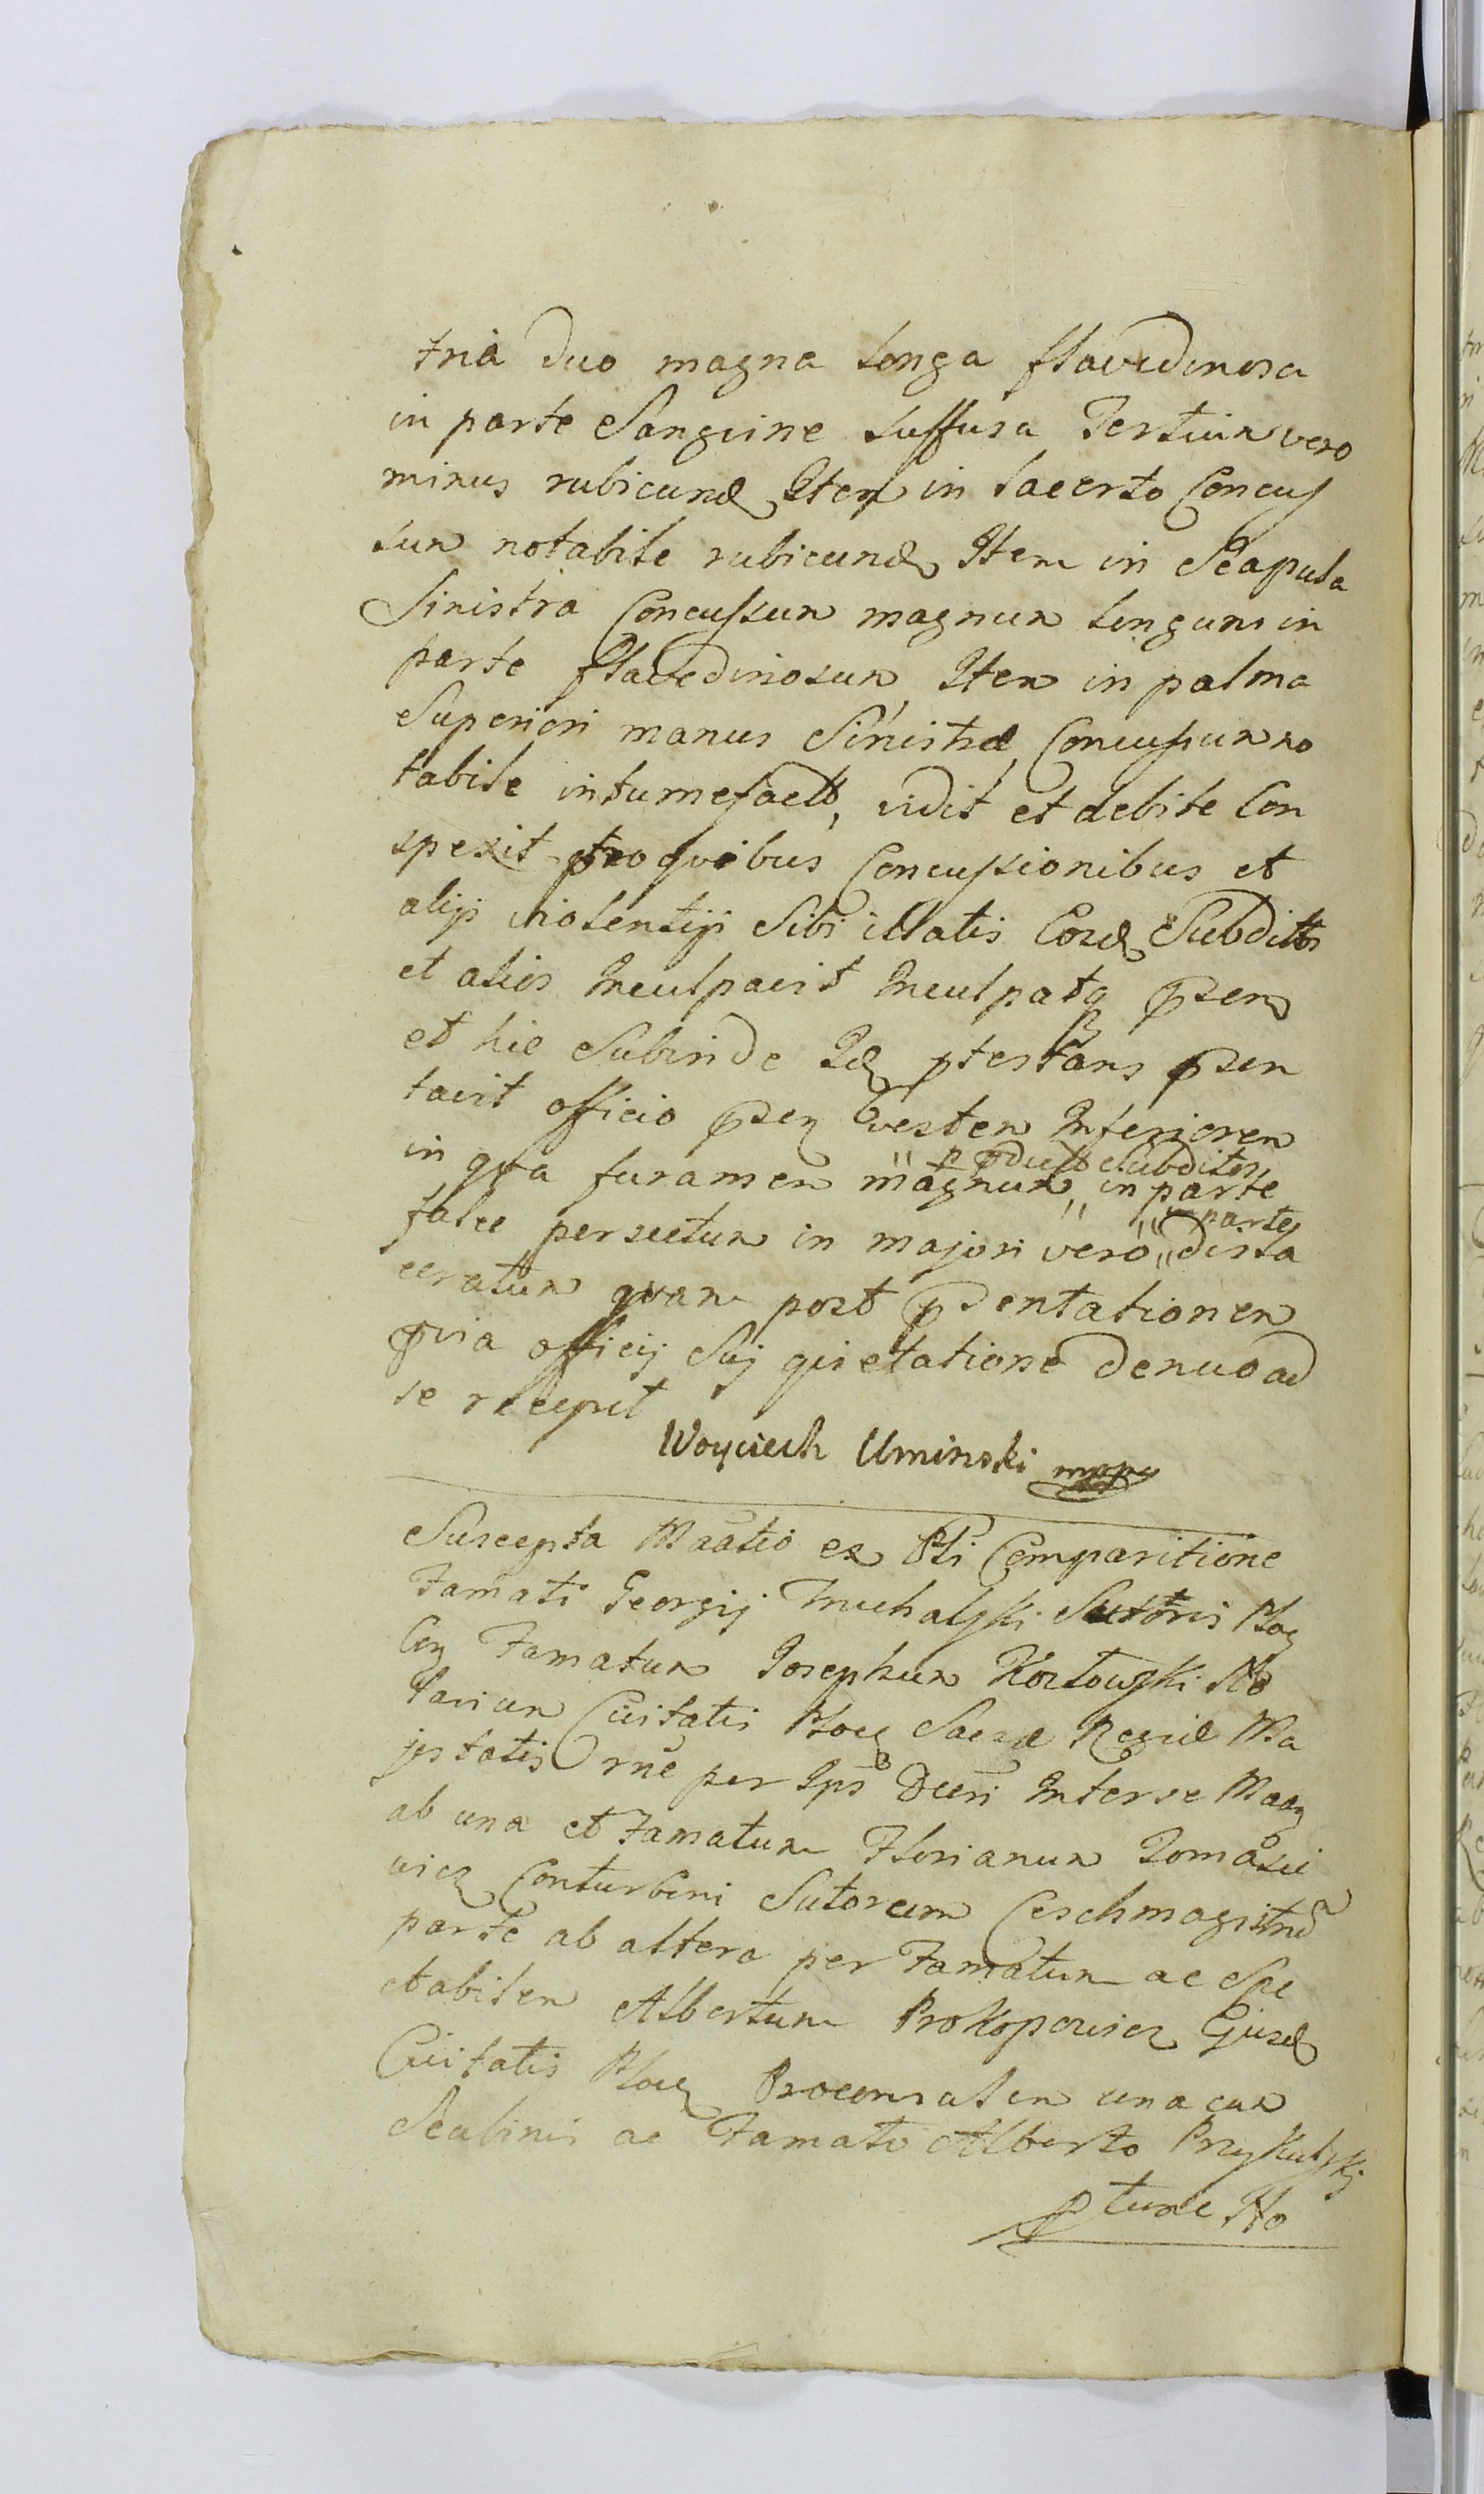 tria duo magna longa flavedinosa
in parte Sanguine suffusa Tertium vero
minus rubicund Item in lacerto Concus
sum notabile rubicund Item in Scapula
Sinistra Concussum magnum longum in
parte flavedinosum Item in palma
Superiori manus Sinistræ Concussum no
tabile intumefact, vidit et debite Con
spexit pro quibus Concussionibus et
alijs violentijs Sibi illatis Eosd Subditos
et alios Inculpavit Inculpatq psen
et hic Subinde Id ptestans psen
tavit officio psen vestem Inferiorem
p Subditos
in qva foramen magnum in parte
parte
falce persectum in majori vero disla
ceratum qvam post psentationem
pvia officij Suj qvietatione denuo ad
se recepit
Woyciech Uminski mpp
Suscepta ex Comparitione
Famati Georgij Michalski Sutoris Ploc
Con Famatum Josephum Kozlowski No
tarium Civitatis Ploc Sacræ Regiæ Ma
jestatis rne per Ips Interse
ab una et Famatum Florianum Tomasze
wicz Conturberni Sutorum Cechmagistru
parte ab altera per Famatum ac Spe
ctabilem Albertum Prokopowicz Ejusd
Civitatis Ploc Proconsulem una cum
Scabinis ac Famato Alberto Przykulski
ptunc No